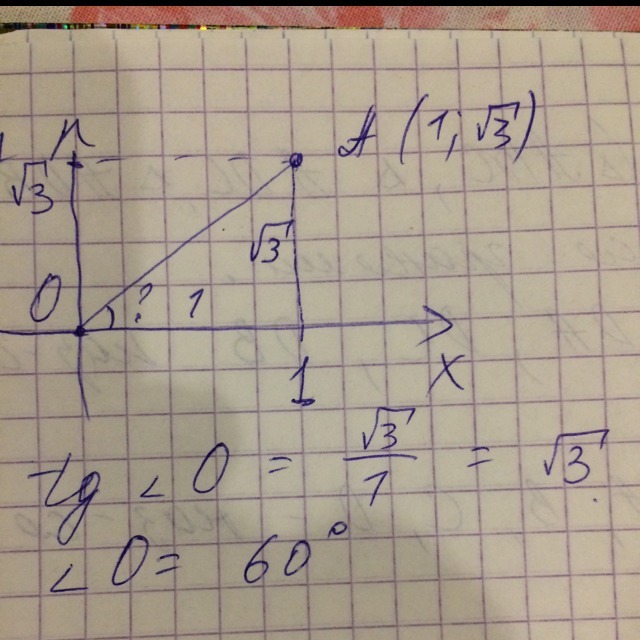 A (1; √3)
√3
√3
0 ? 1
1
X
tg ∠ O = √3 / 1 = √3
∠ O = 60°